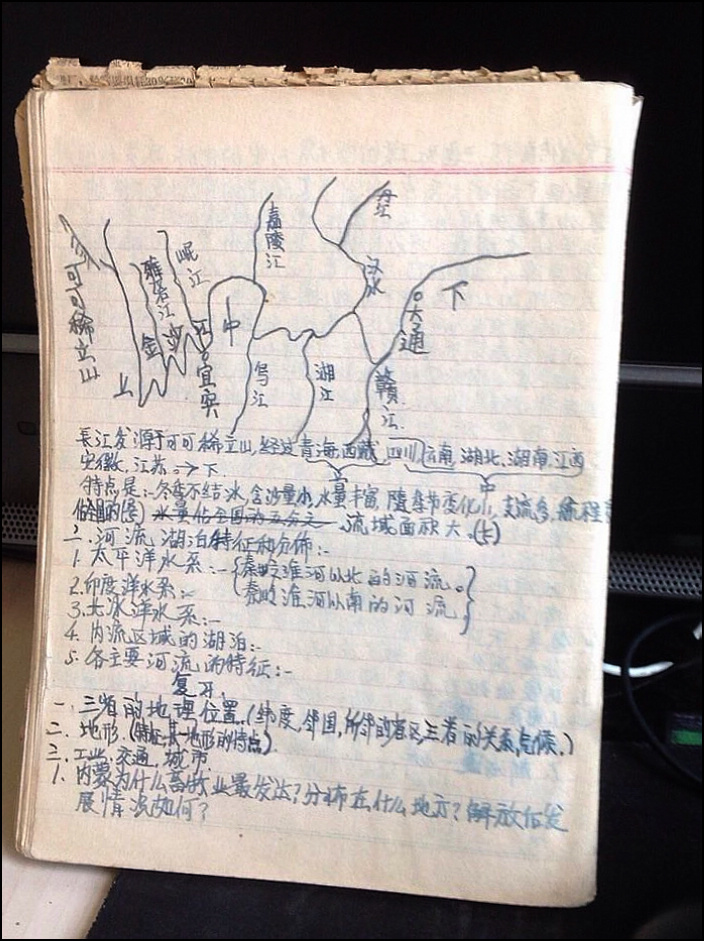 丹江
嘉陵江
岷江
雅砻江
汉水
下
大通
中
可可稀立山
金沙江
宜宾
上
乌江
湘江
赣江
長江发源于可可稀立山,经过青海,西藏,四川,云南,湖北,湖南,江西
安徽,江苏.→下
上 中
特点是:-冬季不结冰,含沙量小,水量丰富,随季节变化小,支流多,流程
佔全国的(吾)水量佔全国的五分之一.流域面积大.
二.河流湖泊特征和分佈:-
1.太平洋水系:-{秦岭淮河以北的河流。
秦岭淮河以南的河流}
2.印度洋水系:-
3.北冰洋水系:-
4.内流区域的湖泊:-
5.各主要河流的特征:-
复习.
一.三省的地理位置.(纬度,邻国,所邻的省区三省的关系,气候.)
二.地形.(特征,其地形的特点).
三.工业,交通,城市
1.内蒙为什么畜牧业最发达?分布在什么地方?解放后发
展情况如何?